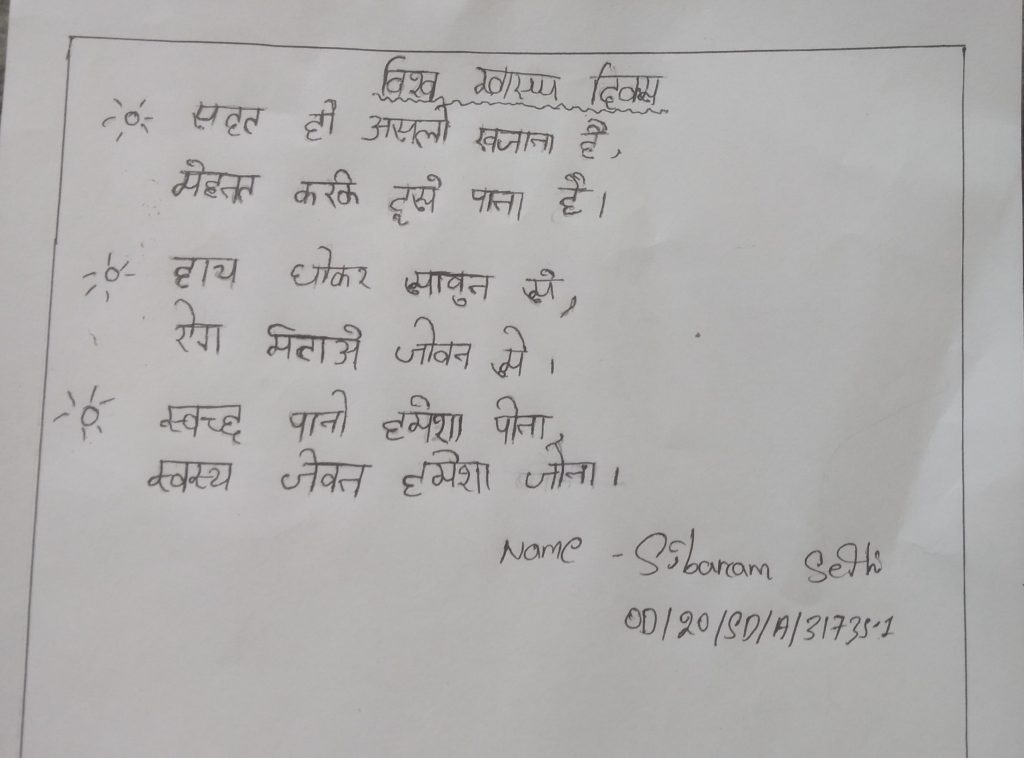 विश्व स्वास्थ्य दिवस
सहत ही असली खजाना है,
मेहनत करके इसे पाना है।
हाथ धोकर साबुन से,
रोग मिटाओ जीवन से।
स्वच्छ पानी हमेशा पीना,
स्वस्थ जीवन हमेशा जीना।
Name - Sibaram Sethi
OD/20/SD/A/317351